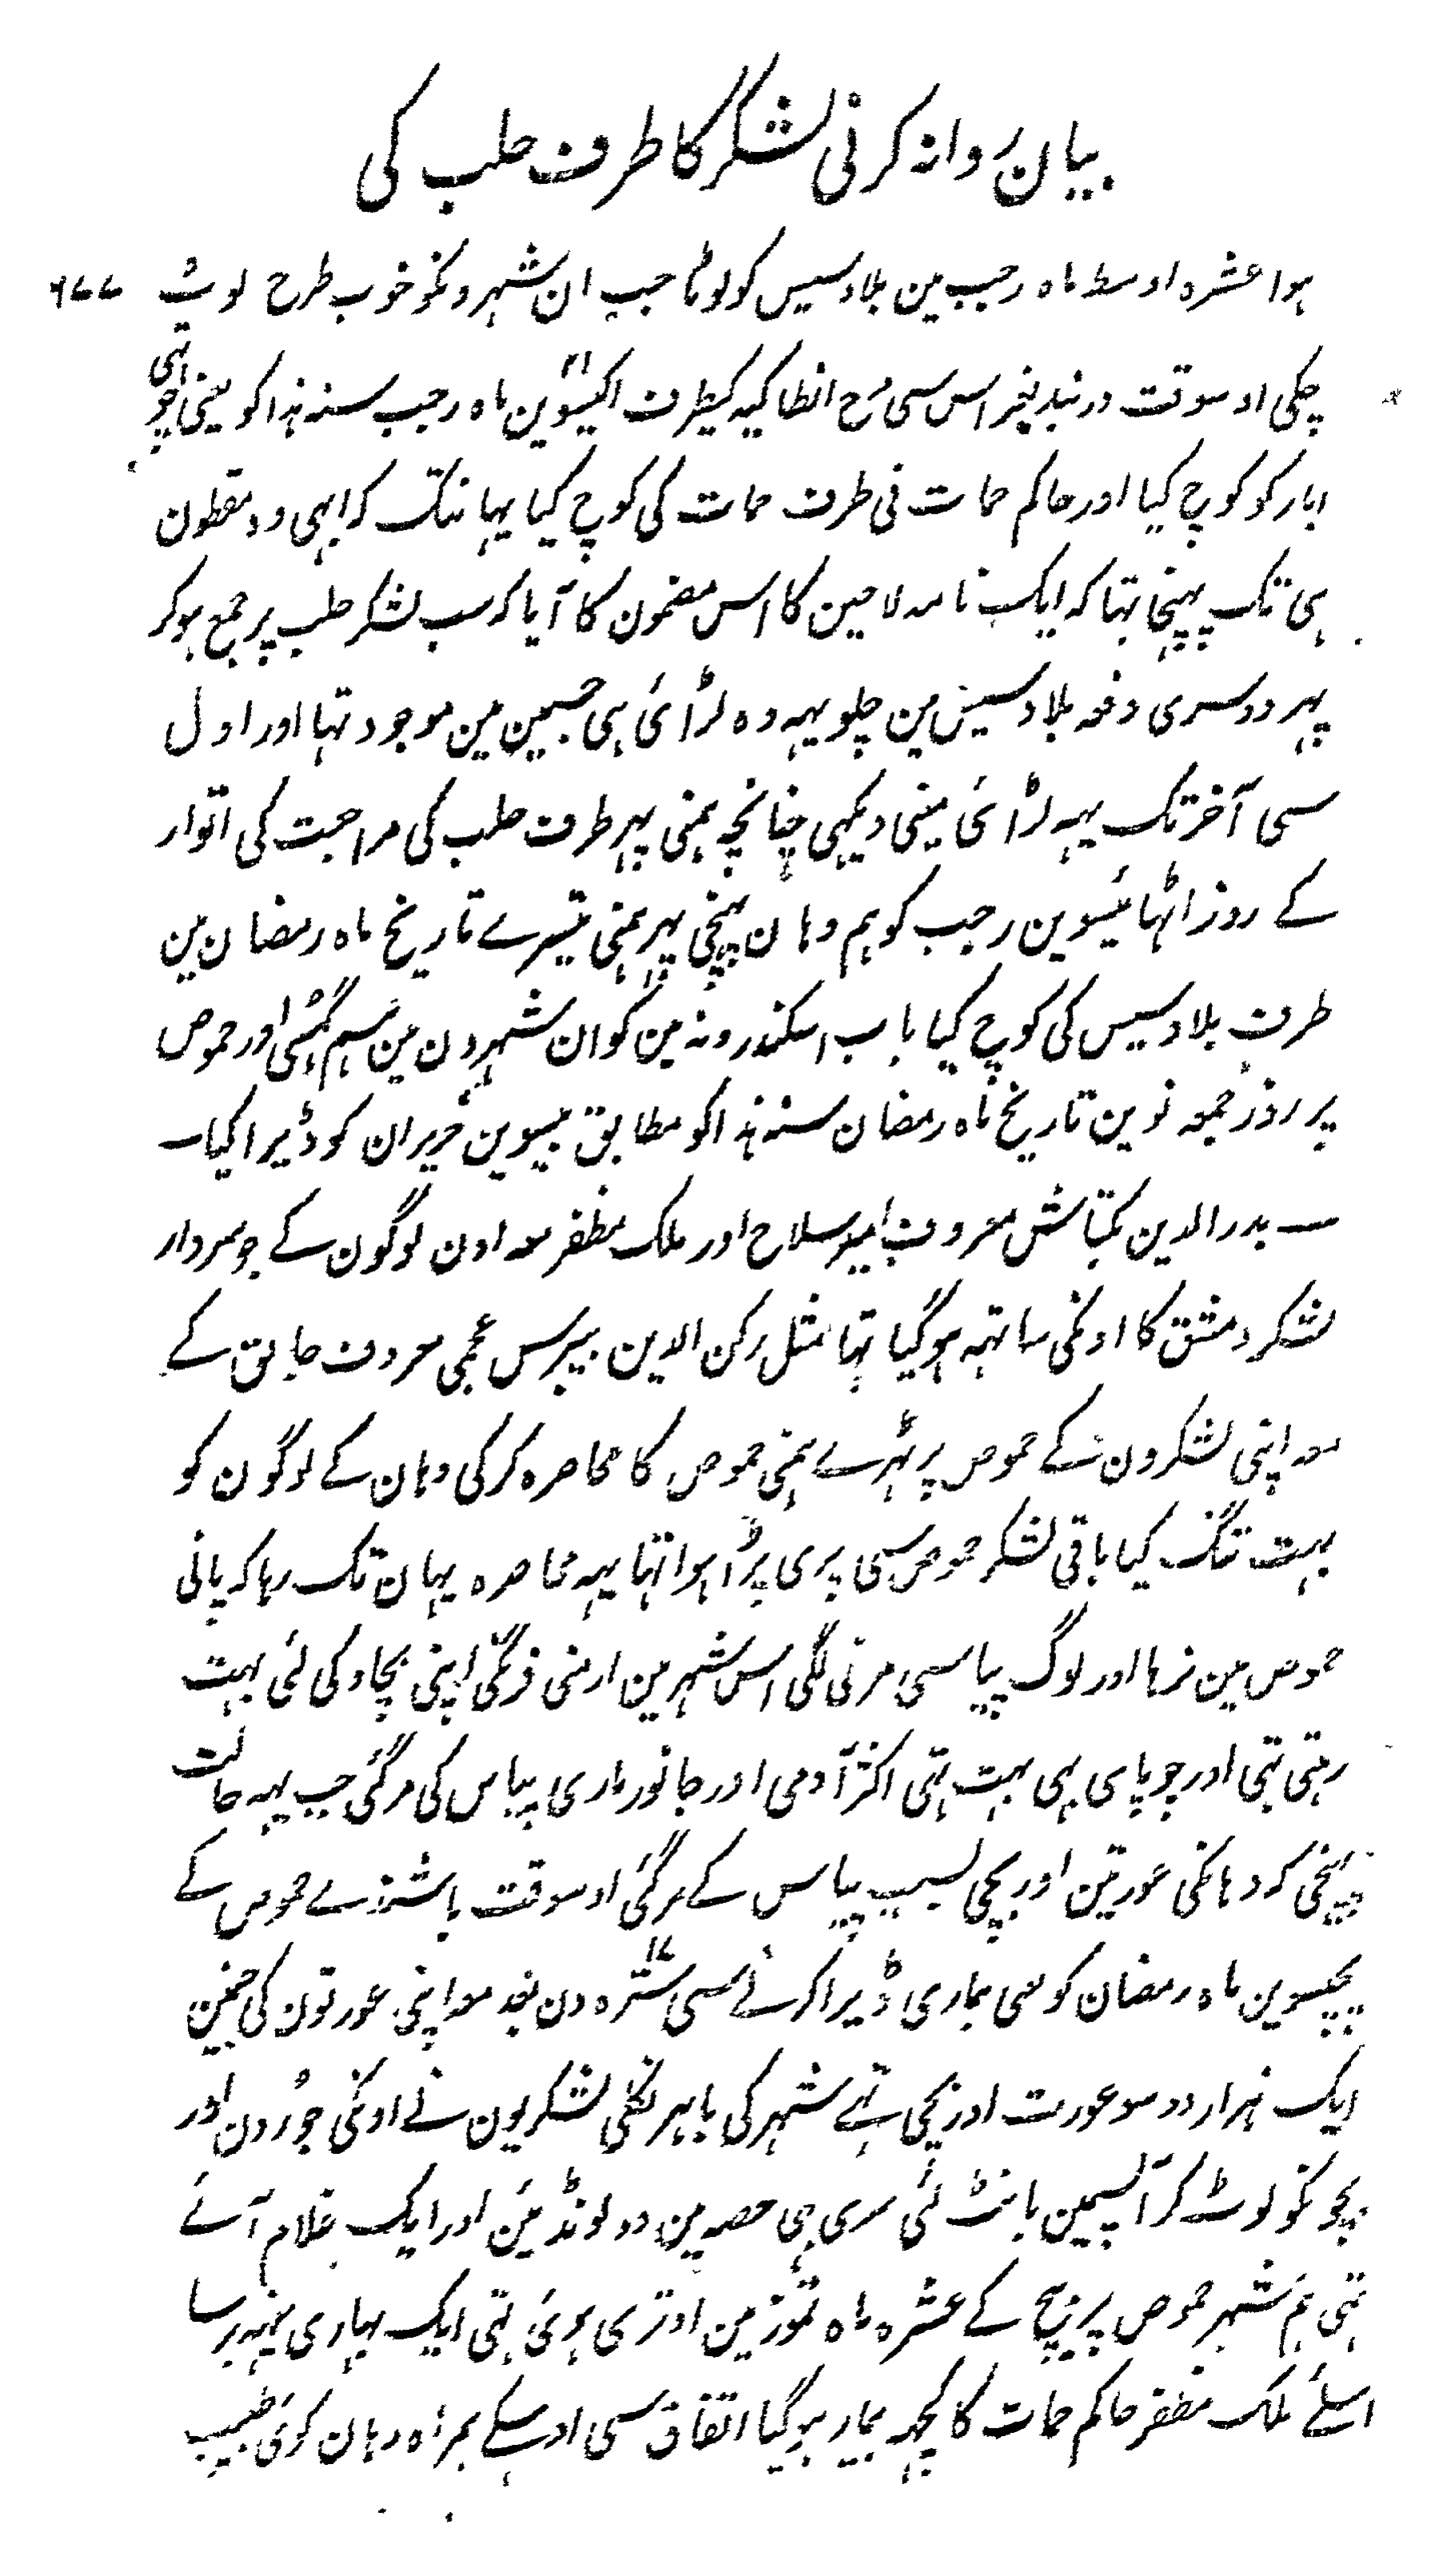 بیان روانہ کرنی لشکر کا طرف حلب کی
ہوا عشرہ اوسط ماہ رجب مین بلاد سیس کو لوٹا جب ان شہرونکو خوب طرح لوٹ
چکی اوسوقت دربند بغراس سی مرج انطاکیہ کیطرف اکیسوین ۲۱ ماہ رجب سنہ ہذا کو یعنی
ابار کو کوچ کیا اور حاکم حمات نی طرف حمات کی کوچ کیا یہانتک کہ ابہی وہ مقطون
ہی تک پہنچا تہا کہ ایک نامہ لاجین کا اس مضمون کا آیا کہ سب لشکر حلب پر جمع ہوکر
پہر دوسری دفعہ بلاد سیس مین چلو یہہ وہ لڑائی ہی جسمین مین موجود تہا اور اول
سی آخر تک یہہ لڑائی مینی دیکہی چنانچہ ہمنی پہر طرف حلب کی مراجعت کی اتوار
کے روز اٹہائیسوین رجب کو ہم وہان پہنچی پہر ہمنی تیسرے تاریخ ماہ رمضان مین
طرف بلاد سیس کی کوچ کیا باب اسکندرونہ مین کو ان شہرون مین ہم گہسی اور حموص
پر روز جمعہ نوین تاریخ ماہ رمضان سنہ ہذا کو مطابق بیسوین حزیران کو ڈیرا کیا
بدر الدین بکتاش معروف امیر سلاح اور ملک مظفر معہ اون لوگون کے جو سردار
لشکر دمشق کا اونکی ساتہہ ہوگیا تہا مثل رکن الدین بیبرس عجمی معروف جالق کے
معہ اپنی لشکرون کے حموص پر ٹہرے ہمنی حموص کا محاصرہ کرکی وہان کے لوگون کو
بہت تنگ کیا باقی لشکر حموص سی پری پڑا ہوا تہا یہہ محاصرہ یہان تک رہا کہ پانی
حموص مین نرہا اور لوگ پیاسی مرنی لگی اس شہر مین ارمنی فرنگی اپنی بچاو کی لئی بہت
رہتی تہی اور چوپای بہی بہت تہی اکثر آدمی اور جانور ماری پیاس کی مرگئی جب یہہ حالت
پہنچی کہ وہانکی عورتین اور بچی بسبب پیاس کے مرگئی اوسوقت باشندے حموص کے
پچیسوین ماہ رمضان کو یعنی ہماری ڈیرا کرنے سی سترہ ۱۷ دن بعد معہ اپنی عورتون کی جنمین
ایک ہزار دو سو عورت اور بچی تہے شہر کی باہر نکلی لشکریون نے اونکی جورون اور
بچونکو لوٹ کر آپسمین بانٹ لئی میری ہی حصہ مین دو لونڈیین اور ایک غلام آئے
تہی ہم شہر حموص پر بیچ کے عشرہ ماہ تموز مین اوتری ہوئی تہی ایک بہاری مینہہ برسا
اسلئے ملک مظفر حاکم حمات کا کچہہ بیمار ہوگیا اتفاق سی اوسکے ہمراہ وہان کوئی طبیب